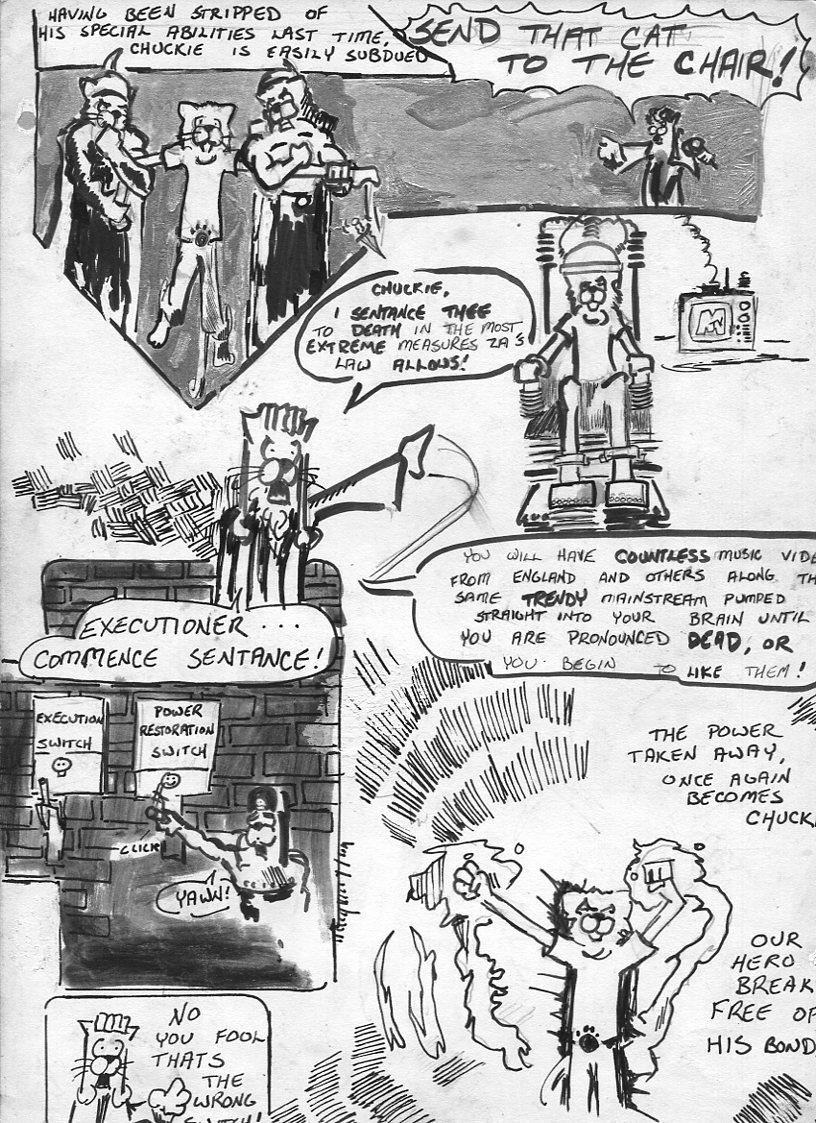 HAVING BEEN STRIPPED OF
HIS SPECIAL ABILITIES LAST TIME,
CHUCKIE IS EASILY SUBDUED
SEND THAT CAT
TO THE CHAIR!
CHUCKIE,
I SENTANCE THEE
TO DEATH IN THE MOST
EXTREME MEASURES ZA'S
LAW ALLOWS!
MTV
YOU WILL HAVE COUNTLESS MUSIC VIDE
FROM ENGLAND AND OTHERS ALONG TH
SAME TRENDY MAINSTREAM PUMPED
STRAIGHT INTO YOUR BRAIN UNTIL
YOU ARE PRONOUNCED DEAD, OR
YOU BEGIN TO LIKE THEM!
EXECUTIONER...
COMMENCE SENTANCE!
EXECUTION
SWITCH
POWER
RESTORATION
SWITCH
CLICK
YAWN!
THE POWER
TAKEN AWAY,
ONCE AGAIN
BECOMES
CHUCK
OUR
HERO
BREAK
FREE OF
HIS BOND
NO
YOU FOOL
THATS
THE
WRONG
SWITCH!